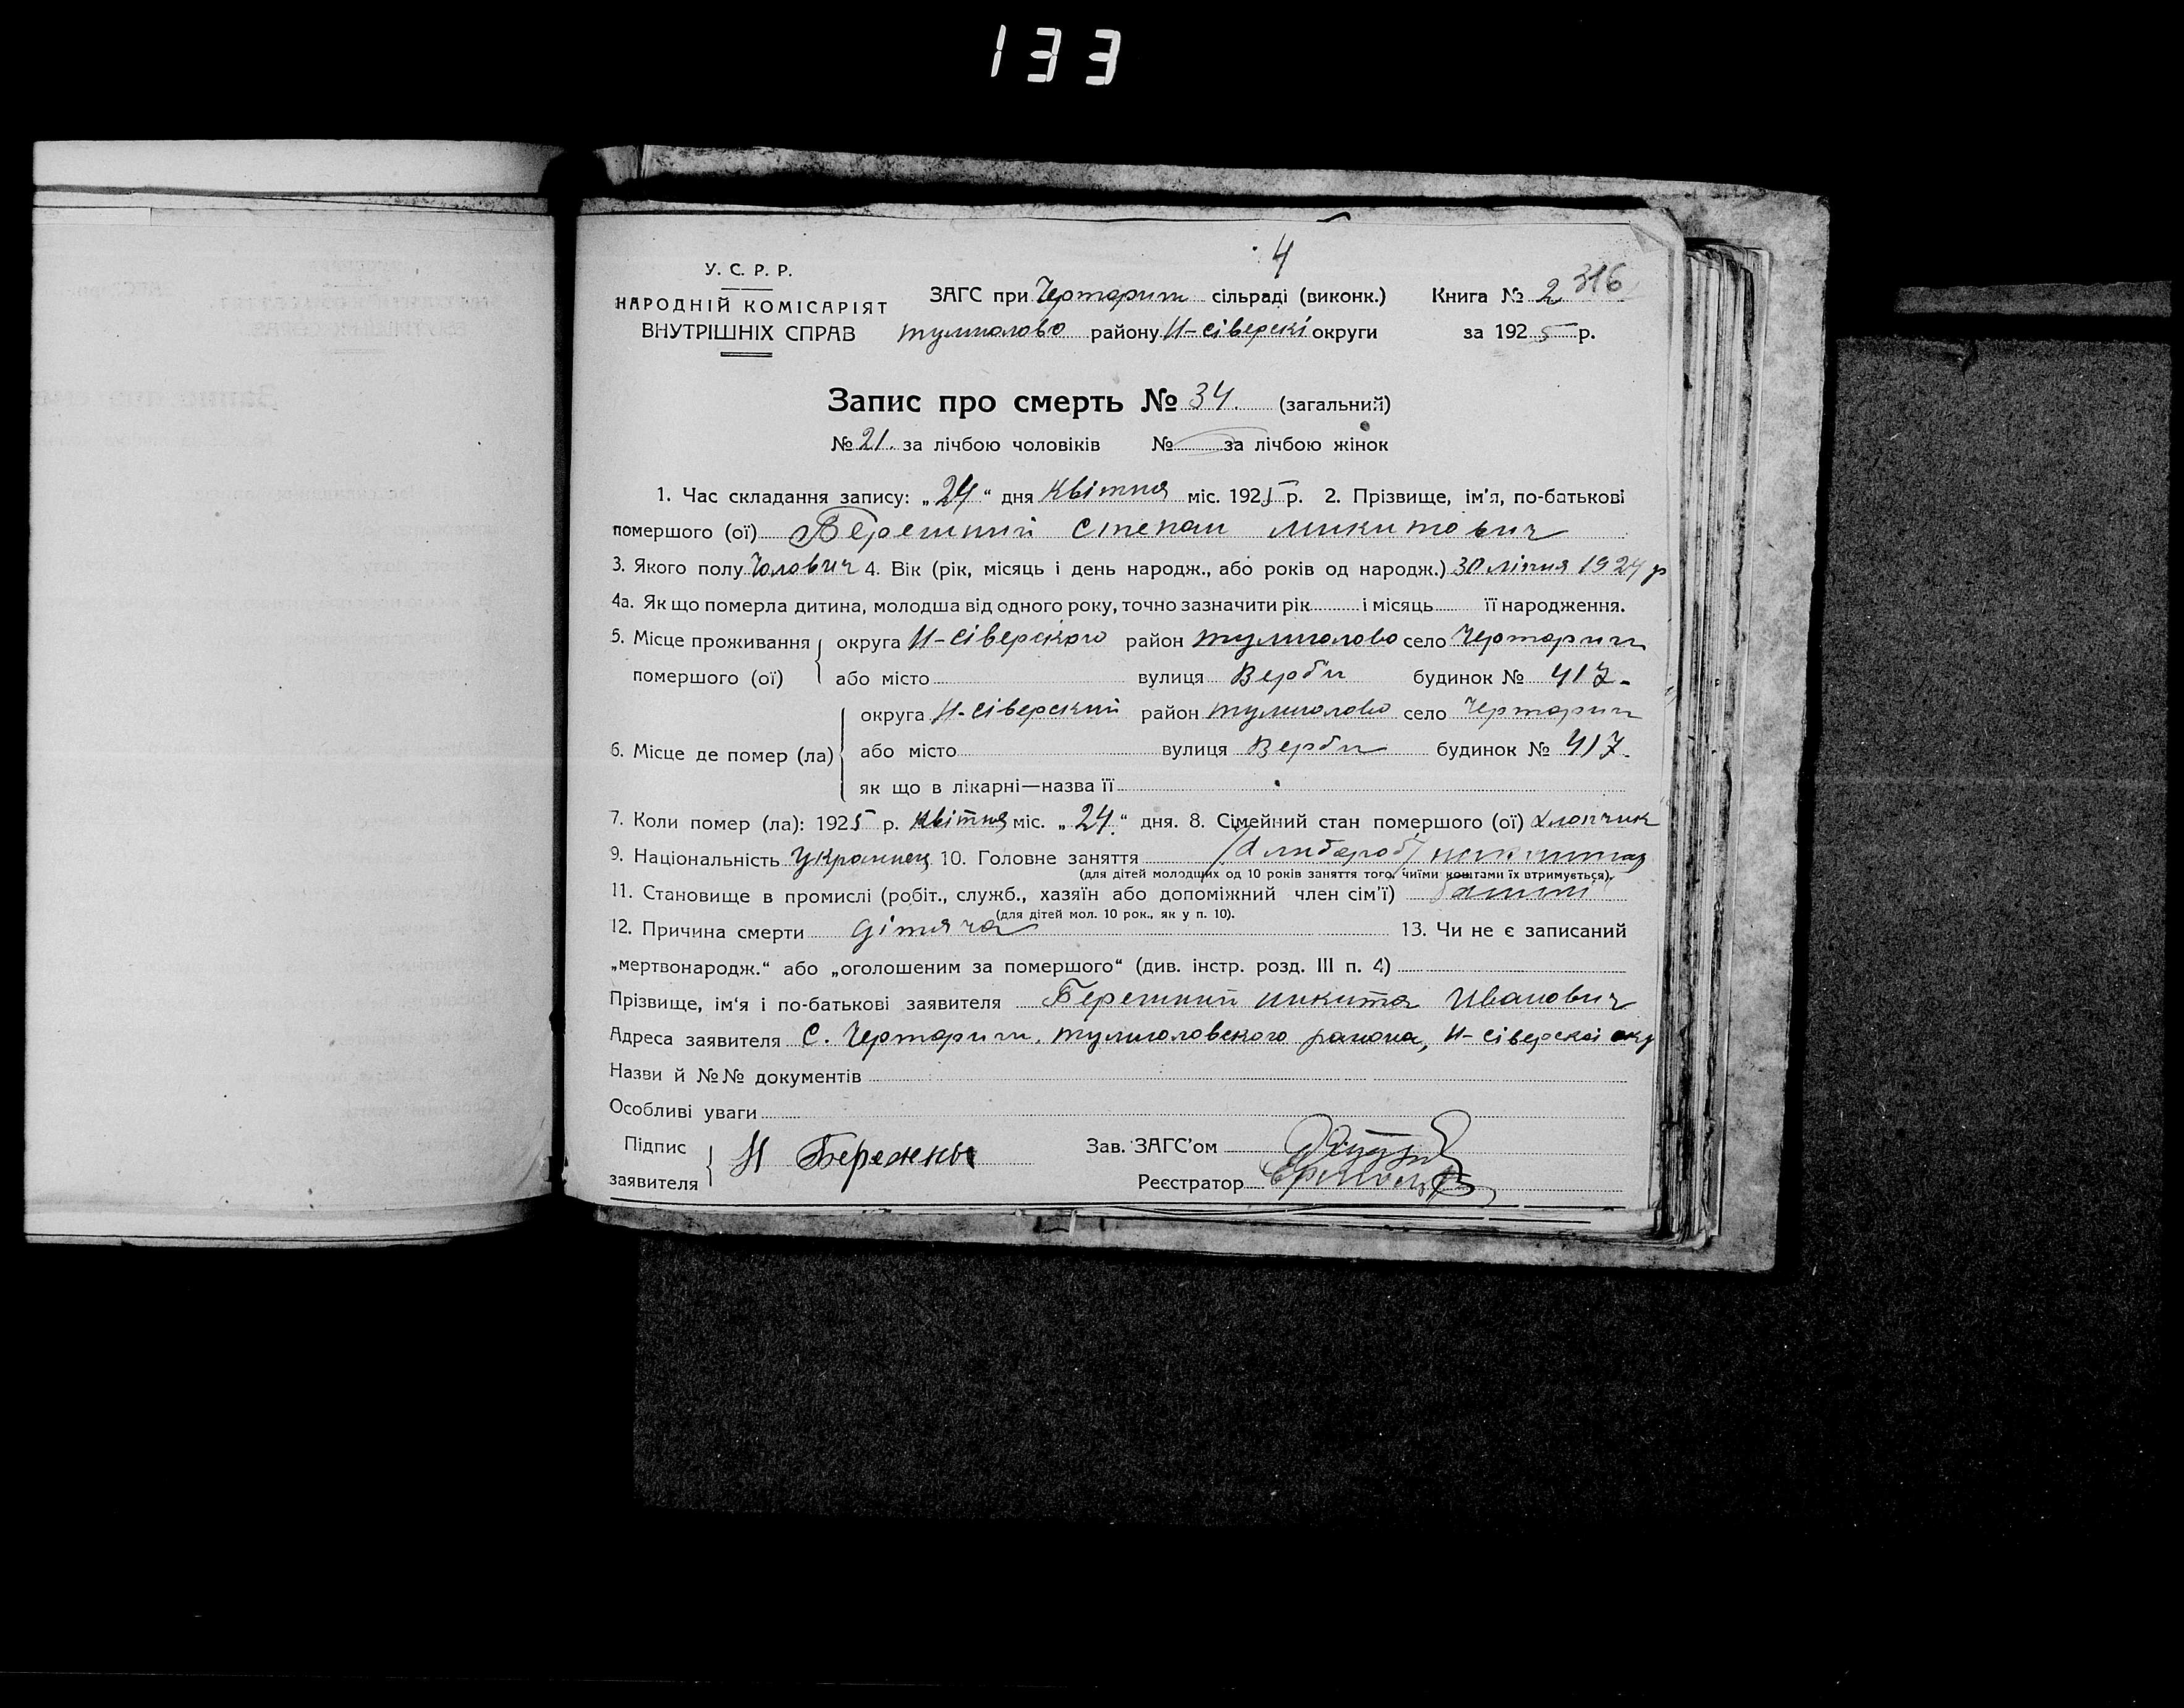 133
4
316
У. С. Р. Р.
НАРОДНІЙ КОМІСАРІЯТ
ВНУТРІШНІХ СПРАВ
ЗАГС при Чорториги сільраді (виконк.) Книга № 2
тулиголово району Н-сіверскі округи за 1925 р.
Запис про смерть № 34. (загальний)
№ 21. за лічбою чоловіків № за лічбою жінок
1. Час складання запису: „24“ дня Квітня міс. 1925 р. 2. Прізвище, ім'я, по-батькові
помершого (ої) Бережний Степан микитович
3. Якого полу Чоловіч 4. Вік (рік, місяць і день народж., або років од народж.) 30 ліпня 1924 р
4а. Як що померла дитина, молодша від одного року, точно зазначити рік і місяць її народження.
5. Місце проживання помершого (ої) округа Н-сіверского район тулиголово село
або місто вулиця Верби будинок № 417-
6. Місце де помер (ла) округа Н-сіверский район тулиголово село
або місто вулиця Верби будинок № 417-
як що в лікарні—назва її
7. Коли помер (ла): 1925 р. Квітня міс. „24.“ дня. 8. Сімейний стан помершого (ої) хлопчик
9. Національність Украинец 10. Головне заняття /хлібороб/
(для дітей молодших од 10 років заняття того, чиїми коштами їх втримується).
11. Становище в промислі (робіт., служб., хазяїн або допоміжний член сім'ї)
(для дітей мол. 10 рок., як у п. 10).
12. Причина смерти дітяча 13. Чи не є записаний
„мертвонародж.“ або „оголошеним за помершого“ (див. інстр. розд. III п. 4)
Прізвище, ім'я і по-батькові заявителя Бережний никита Иванович
Адреса заявителя С. тулиголовского района, Н-сіверскої окр
Назви й №№ документів
Особливі уваги
Підпис заявителя Н Бережны Зав. ЗАГС'ом
Реєстратор